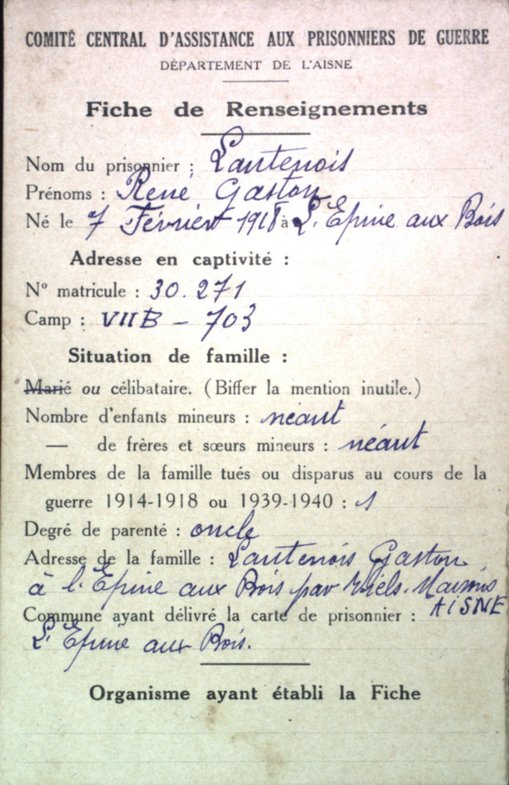 COMITÉ CENTRAL D'ASSISTANCE AUX PRISONNIERS DE GUERRE
DÉPARTEMENT DE L'AISNE
Fiche de Renseignements
Nom du prisonnier : Lantenois
Prénoms : René Gaston
Né le 7 Février 1918 à L'Epine aux Bois
Adresse en captivité :
N° matricule : 30.271
Camp : VIIB - 703
Situation de famille :
Marié ou célibataire. (Biffer la mention inutile.)
Nombre d'enfants mineurs : néant
— de frères et sœurs mineurs : néant
Membres de la famille tués ou disparus au cours de la
guerre 1914-1918 ou 1939-1940 : 1
Degré de parenté : oncle
Adresse de la famille : Lantenois Gaston
à l'Epine aux Bois par Viels-Maisons
AISNE
Commune ayant délivré la carte de prisonnier :
L'Epine aux Bois.
Organisme ayant établi la Fiche